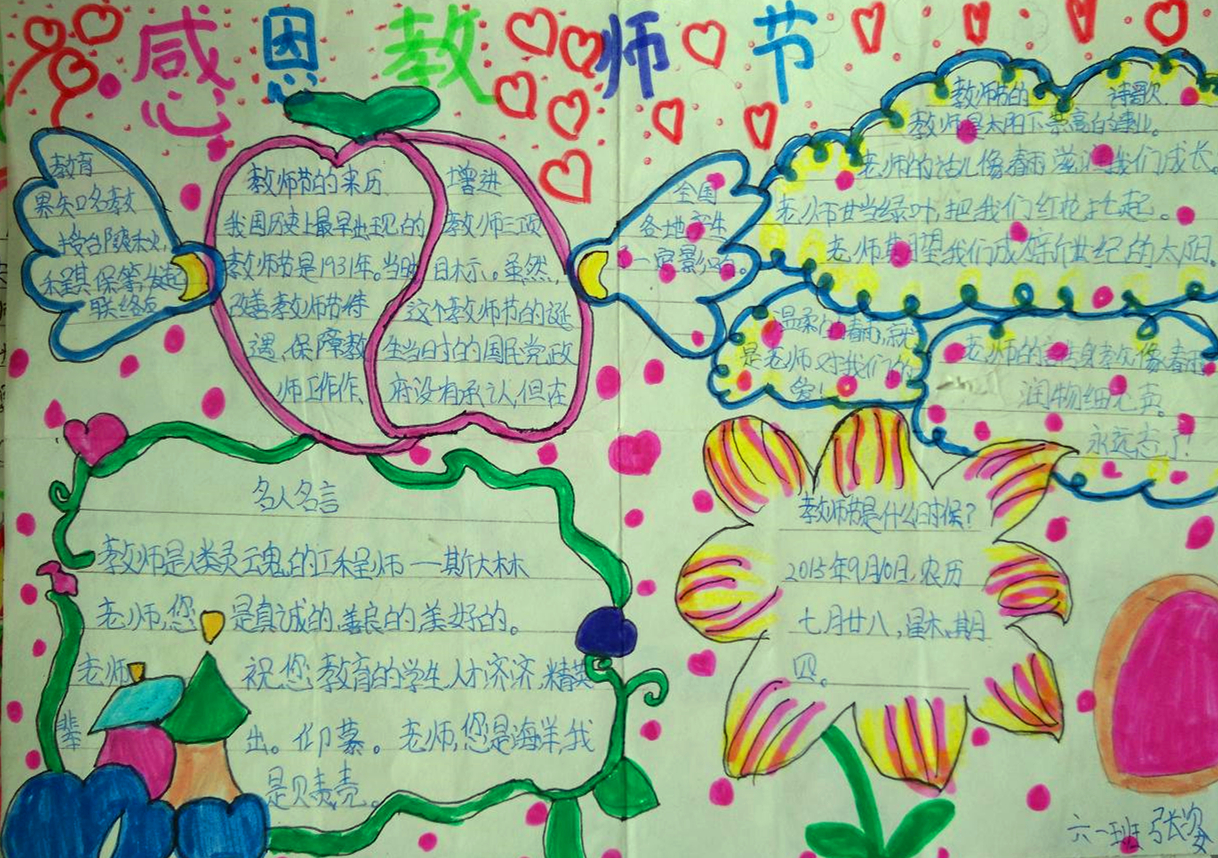 感恩教师节
教育
界知名教
授台隊
程琪保等发起
联络
教师节的来历
我国历史上最早出现的
教师节是1931年。当时
改善教师节待
遇,保障教
师工作作
增进
教师三项
目标示。虽然,
这个教师节的诞
生当时的国民党政
府没有承认,但在
全国
各地产生
一定影响。
教师节的 诗歌
教师是太阳下崇高的事业。
老师的话儿像春雨滋润我们成长。
老师甘当绿叶,把我们红花托起。
老师期望我们成为新世纪的太阳。
温柔的春雨,就
是老师对我们的
爱!
老师的言传身教就像春雨
润物细无声。
永远忘了!
名人名言
教师是人类灵魂的工程师——斯大林
老师,您 是真诚的,善良的,美好的。
老师 祝您教育的学生,人才济济,精英
辈 出。仰慕。老师,您是海洋,我
是贝壳。
教师节是什么时候?
2015年9月10日,农历
七月廿八,星期
四。
六一班 张姿